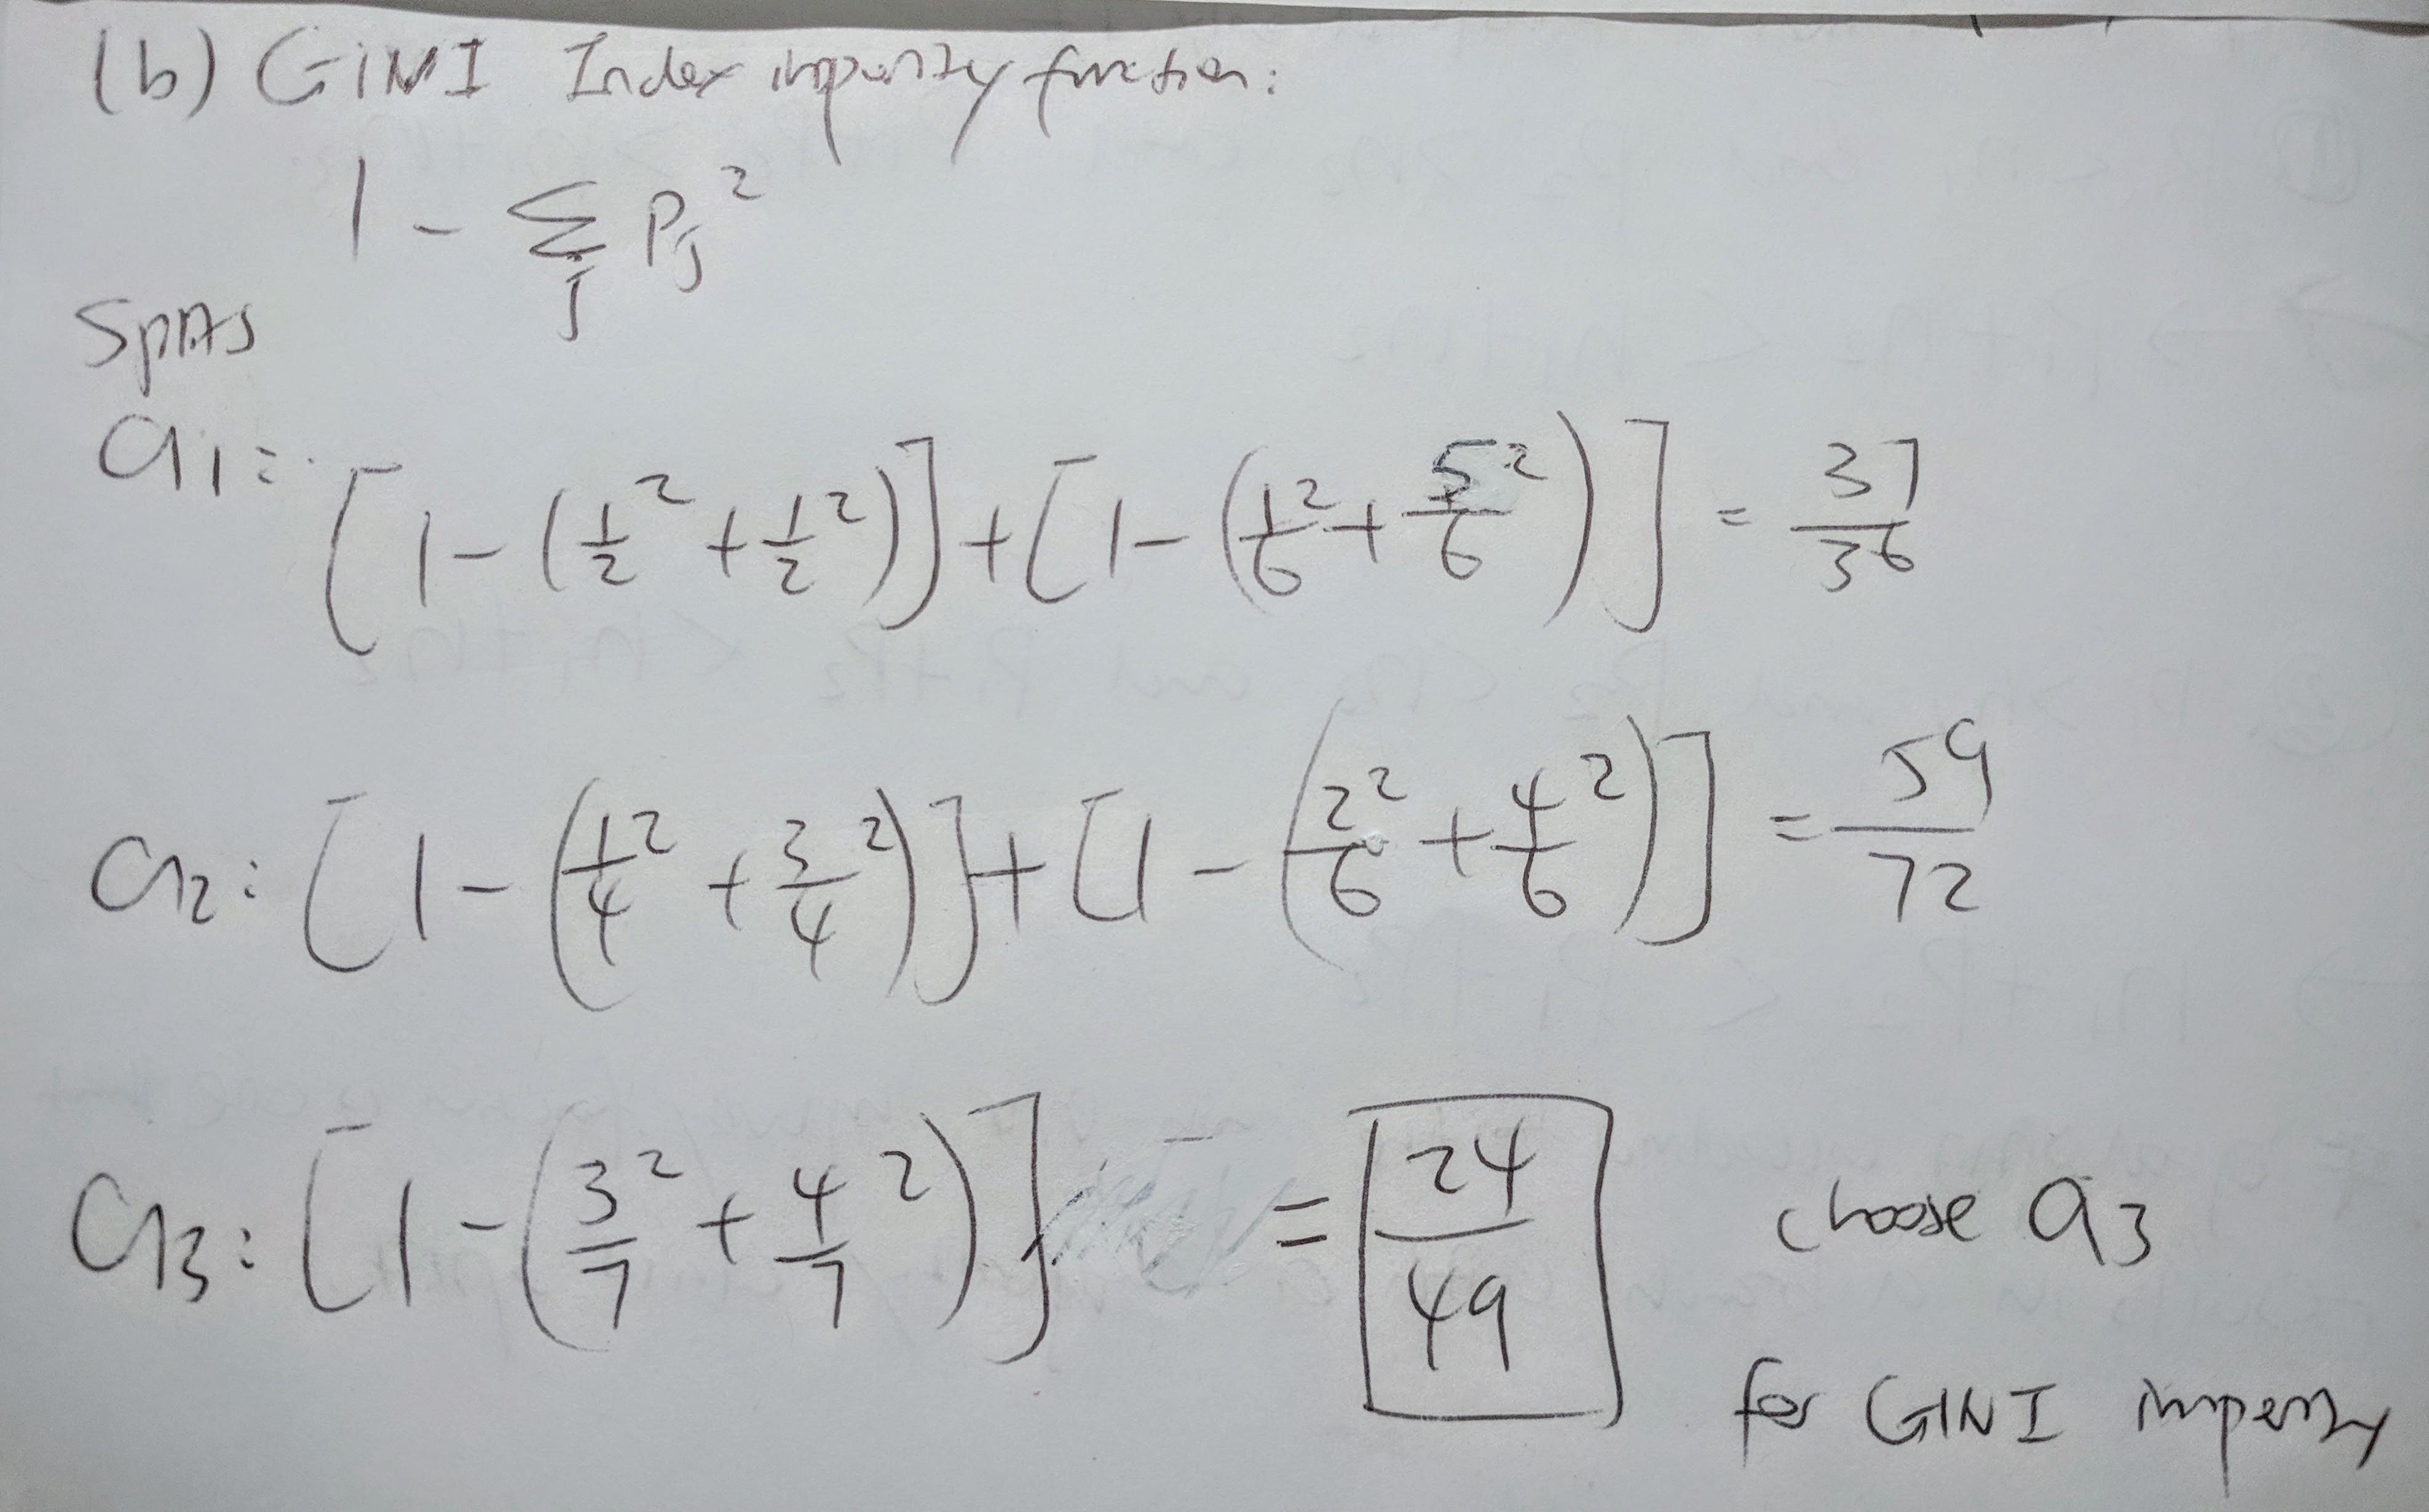 (b) GINI Index impurity function:
1 - Σ_j P_j²
Splits
a₁: [1 - (1/2² + 1/2²)] + [1 - (1/6² + 5/6²)] = 37/36
a₂: [1 - (1/4² + 3/4²)] + [1 - (2/6² + 4/6²)] = 59/72
a₃: [1 - (3/7² + 4/7²)] = 24/49 choose a₃
for GINI impurity